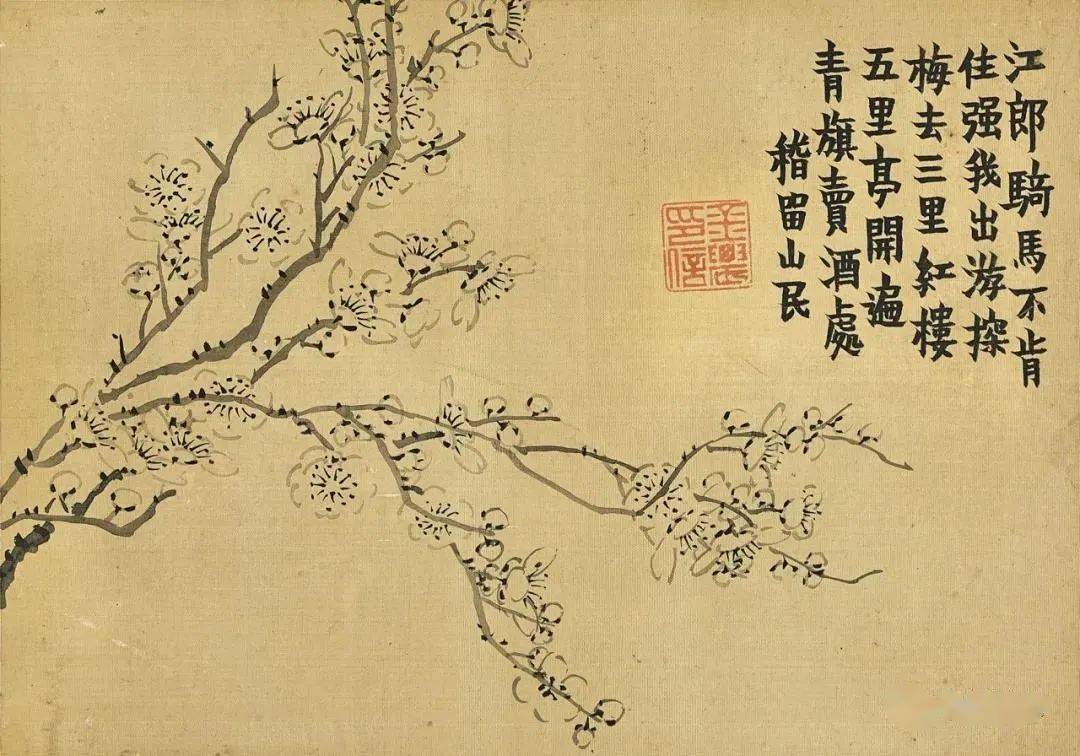 江郎騎馬不肯
住强我出游探
梅去三里紅樓
五里亭開遍
青旗賣酒處
稽留山民
金農印信